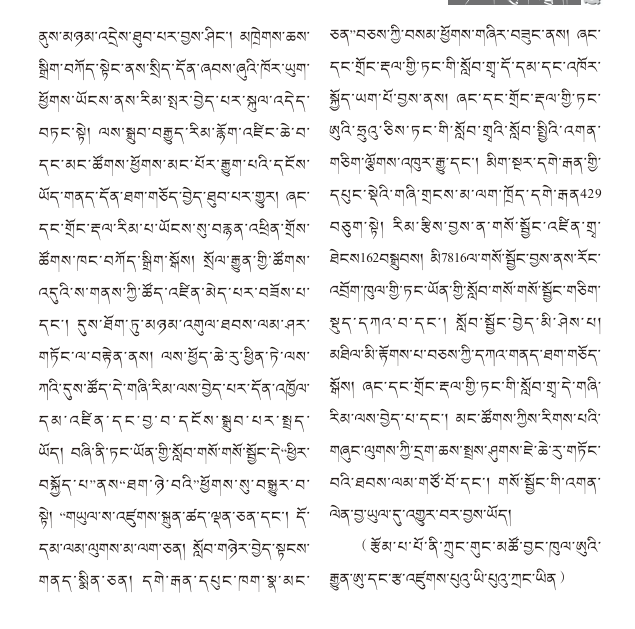 ནུས་མཉམ་འདྲེས་ཐུབ་པར་བྱས་ཤིང་། མཁྲེགས་ཆས་
སྒྲིག་བཀོད་སྟེང་ནས་སྲིད་དོན་ཞབས་ཞུའི་ཁོར་ཡུག་
ཕྱོགས་ཡོངས་ནས་རིམ་སྤར་བྱེད་པར་སྐུལ་འདེད་
བཏང་སྟེ། ལས་སྒྲུབ་བརྒྱུད་རིམ་རྙོག་འཛིང་ཆེ་བ་
དང་མང་ཚོགས་ཕྱོགས་མང་པོར་རྒྱུག་པའི་དངོས་
ཡོད་གནད་དོན་ཐག་གཅོད་བྱེད་ཐུབ་པར་གྱུར། ཞང་
དང་གྲོང་རྡལ་རིམ་པ་ཡོངས་སུ་བརྙན་འཕྲིན་གྲོས་
ཚོགས་ཁང་བཀོད་སྒྲིག་སྒོས། སྲོལ་རྒྱུན་གྱི་ཚོགས་
འདུའི་ས་གནས་ཀྱི་ཚོད་འཛིན་མེད་པར་བཟོས་པ་
དང་། དུས་ཐོག་ཏུ་མཉམ་འགུལ་ཐབས་ལམ་ཤར་
གཏོང་ལ་བརྟེན་ནས། ལས་ཕྱོད་ཆེ་རུ་ཕྱིན་ཏེ་ལས་
ཀའི་དུས་ཚོད་དེ་གཞི་རིམ་ལས་བྱེད་པར་དོན་འཁྱོལ་
དམ་འཛིན་དང་བྱ་བ་དངོས་སྒྲུབ་པར་སྤྲད་
ཡོད། བཞི་ནི་ཏང་ཡོན་གྱི་སློབ་གསོ་གསོ་སྦྱོང་དེ“ཕྱིར་
བསྐྱོད་པ”ནས“ཐག་ཉེ་བའི”ཕྱོགས་སུ་བསྒྱུར་བ་
སྟེ། “གཡུལ་ས་འཛུགས་སྐྲུན་ཚད་ལྡན་ཅན་དང་། དོ་
དམ་ལམ་ལུགས་མ་ལག་ཅན། སློབ་གཉེར་བྱེད་སྟངས་
གནད་སྨིན་ཅན། དགེ་རྒན་དཔུང་ཁག་སྣ་མང་
ཅན”བཅས་ཀྱི་བསམ་ཕྱོགས་གཞིར་བཟུང་ནས། ཞང་
དང་གྲོང་རྡལ་གྱི་ཏང་གི་སློབ་གྲྭ་དོ་དམ་དང་འཁོར་
སྐྱོད་ཡག་པོ་བྱས་ནས། ཞང་དང་གྲོང་རྡལ་གྱི་ཏང་
ཨུའི་ཧྲུའུ་ཅིས་ཏང་གི་སློབ་གྲྭའི་སློབ་སྤྱིའི་འགན་
གཅིག་ལྕོགས་འཁུར་རྒྱུ་དང་། མིག་སྔར་དགེ་རྒན་གྱི་
དཔུང་སྡེའི་གཞི་གྲངས་མ་ལག་ཁྲོད་དགེ་རྒན429
བཅུག་སྟེ། རིམ་རྩིས་བྱས་ན་གསོ་སྦྱོང་འཛིན་གྲྭ་
ཐེངས162བསྒྲུབས། མི7816ལ་གསོ་སྦྱོང་བྱས་ནས་རོང་
འབྲོག་ཁུལ་གྱི་ཏང་ཡོན་གྱི་སློབ་གསོ་གསོ་སྦྱོང་གཅིག་
སྡུད་དཀའ་བ་དང་། སློབ་སྦྱོང་བྱེད་མི་ཤེས་པ།
མཐིལ་མི་རྟོགས་པ་བཅས་ཀྱི་དཀའ་གནད་ཐག་གཅོད་
སྒོས། ཞང་དང་གྲོང་རྡལ་གྱི་ཏང་གི་སློབ་གྲྭ་དེ་གཞི་
རིམ་ལས་བྱེད་པ་དང་། མང་ཚོགས་ཀྱིས་རིགས་པའི་
གཞུང་ལུགས་ཀྱི་དྲག་ཆས་སྤྲས་ཤུགས་ཇེ་ཆེ་རུ་གཏོང་
བའི་ཐབས་ལམ་གཙོ་བོ་དང་། གསོ་སྦྱོང་གི་འགན་
ལེན་བྱ་ཡུལ་དུ་འགྱུར་བར་བྱས་ཡོད།
（རྩོམ་པ་པོ་ནི་ཀྲུང་གུང་མཚོ་བྱང་ཁུལ་ཨུའི་
རྒྱུན་ཨུ་དང་རྩ་འཛུགས་པུའུ་ཡི་པུའུ་ཀྲང་ཡིན）